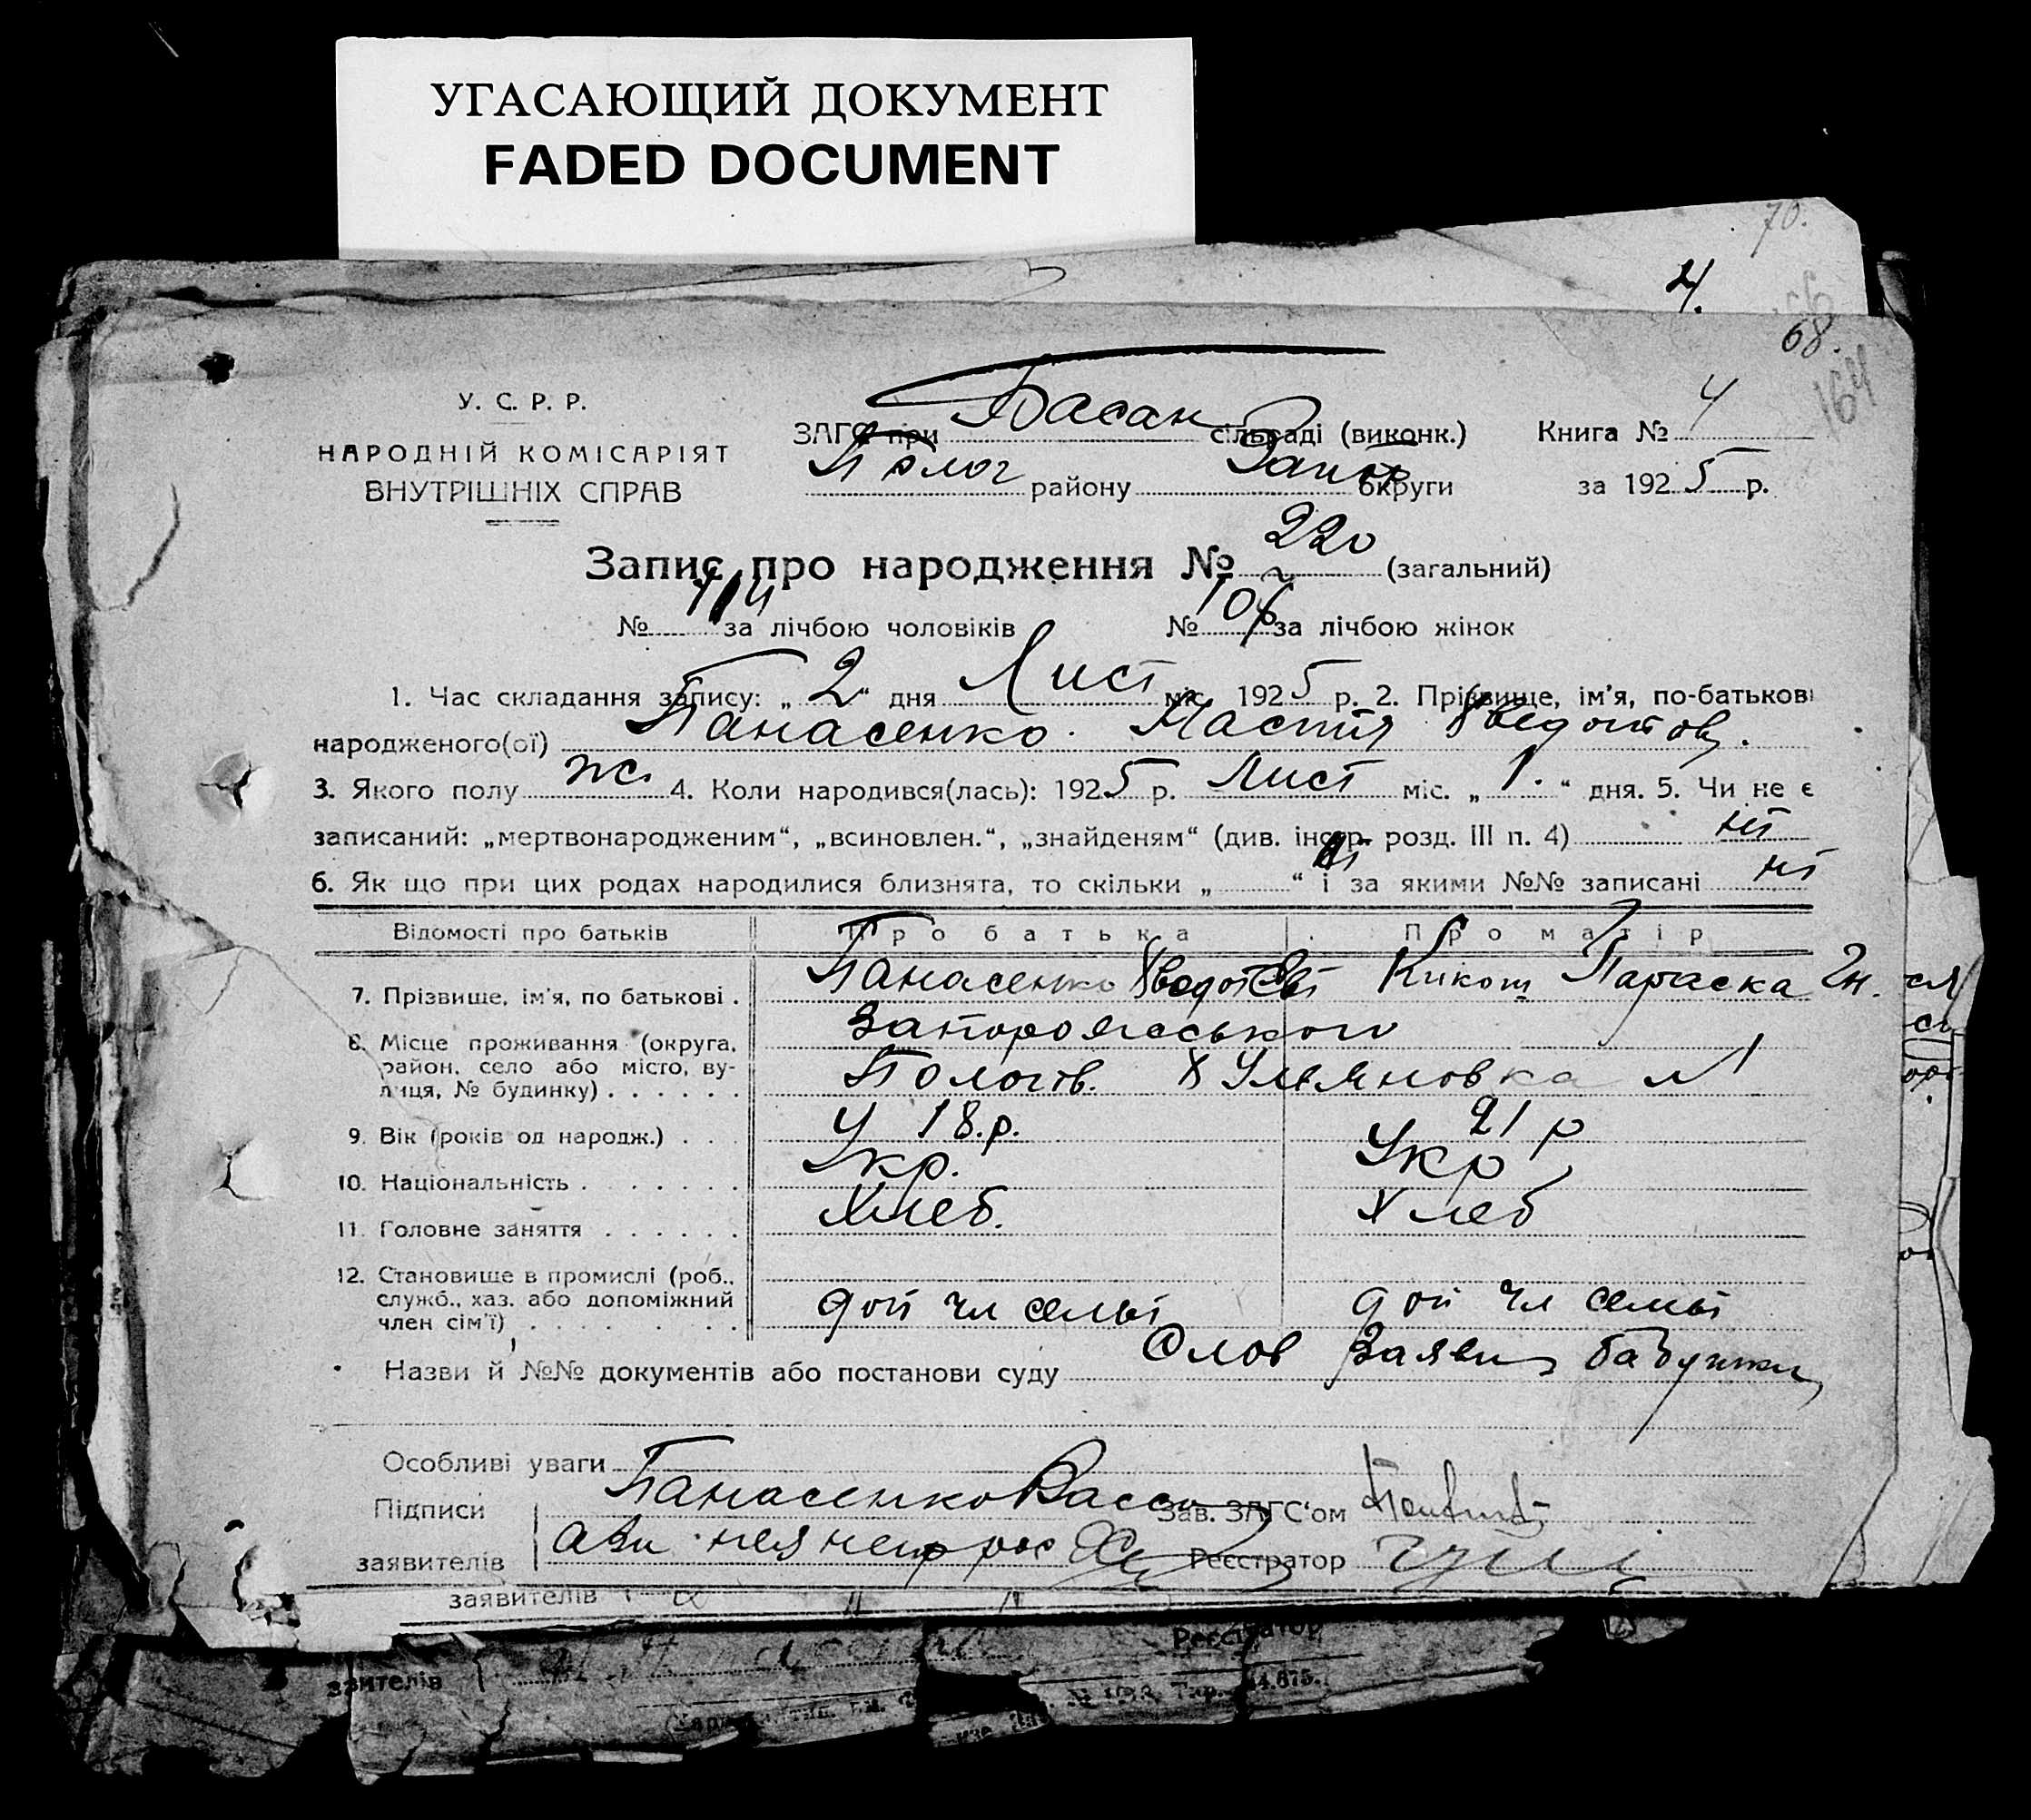 УГАСАЮЩИЙ ДОКУМЕНТ
FADED DOCUMENT
70.
4.
68.
164
У. С. Р. Р.
НАРОДНІЙ КОМІСАРІЯТ
ВНУТРІШНІХ СПРАВ
ЗАГС при Басан сільраді (виконк.) Книга № 4
Полог району Запор округи за 1925 р.
Запис про народження № 220 (загальний)
№ 114 за лічбою чоловіків № 106 за лічбою жінок
1. Час складання запису: „ 2 “ дня Лист міс. 1925 р. 2. Прізвище, ім'я, по-батькові
народженого(ої) Панасенко Настя
3. Якого полу ж. 4. Коли народився(лась): 1925 р. Лист міс. „ 1. “ дня. 5. Чи не є
записаний: „мертвонародженим“, „всиновлен.“, „знайденям“ (див. інстр. розд. III п. 4) ні
6. Як що при цих родах народилися близнята, то скільки „ ні “ і за якими №№ записані ні
Відомості про батьків Про батька Про матір
7. Прізвище, ім'я, по батькові . Панасенко Кикот Параска Гн.
8. Місце проживання (округа, Запорожського
район, село або місто, ву-
лиця, № будинку) . . . . . . Пологів. х Ульяновка
9. Вік (років од народж.) . . . 18.р. 21 р
10. Національність . . . . . . . Укр. Укр
11. Головне заняття . . . . . . Хлеб. Хлеб
12. Становище в промислі (роб.,
служб., хаз. або допоміжний
член сім'ї) . . . . . . . . . доп чл семьі доп чл семьі
Назви й №№ документів або постанови суду Слов Заяви бабушки
Особливі уваги
Підписи Панасенко Васси Зав. ЗАГС'ом
заявителів Реєстратор
заявителів
Реєстратор
заявителів